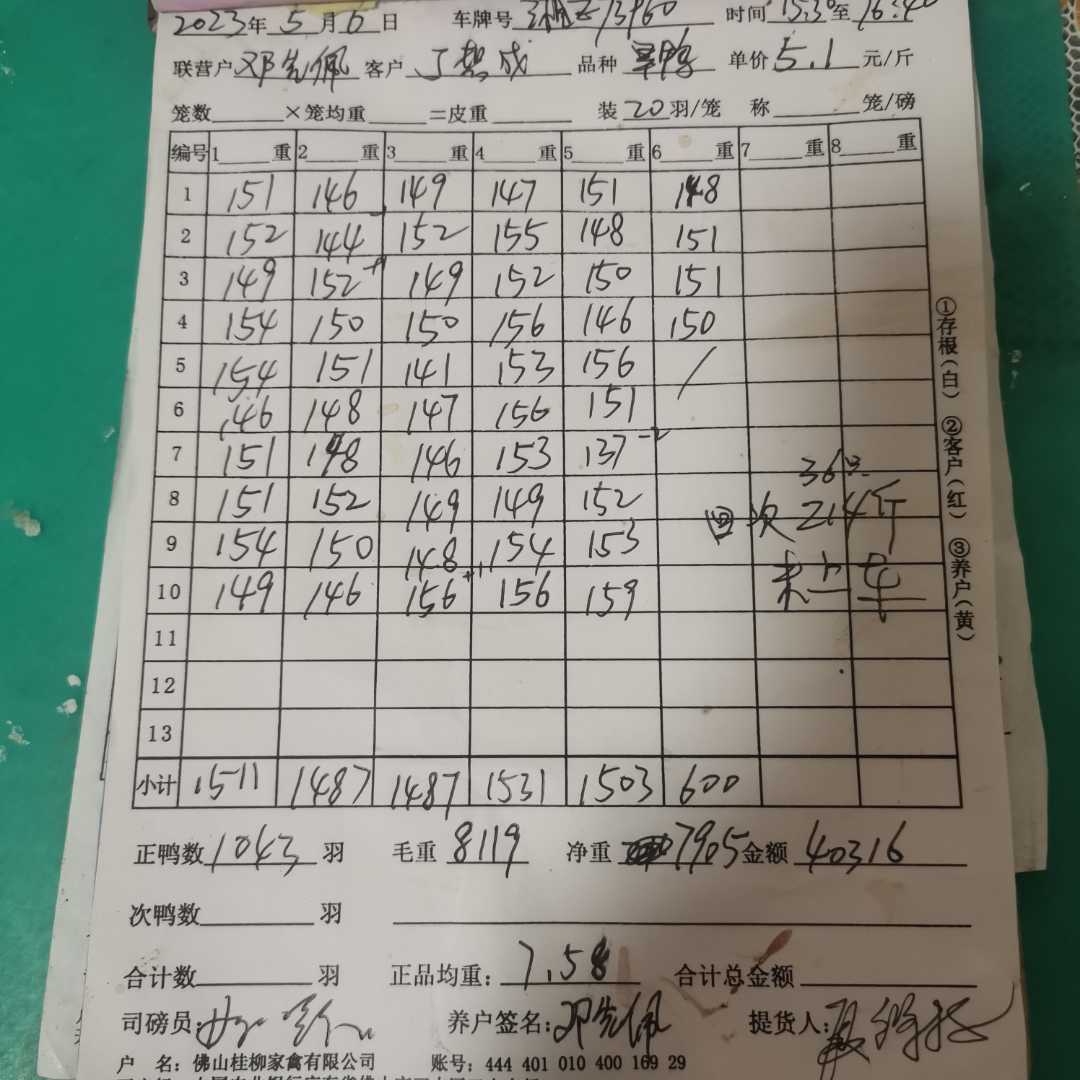 2023年 5 月 6 日 车牌号 13960 时间 15:30 至 16:40
联营户 邓先佩 客户 丁楚成 品种 旱鸭 单价 5.1 元/斤
笼数 ×笼均重 =皮重 装 20 羽/笼 称 笼/磅
编号 1 重 2 重 3 重 4 重 5 重 6 重 7 重 8 重
1 151 146 149 147 151 148
2 152 144 152 155 148 151
3 149 152 149 152 150 151
4 154 150 150 156 146 150
5 154 151 141 153 156 /
6 146 148 147 156 151
7 151 148 146 153 137 -2
8 151 152 149 149 152
9 154 150 148 154 153
10 149 146 156 +1 156 159
36只
次 214斤
未上车
11
12
13
小计 1511 1487 1487 1531 1503 600
①存根(白) ②客户(红) ③养户(黄)
正鸭数 1043 羽 毛重 8119 净重 7905 金额 40316
次鸭数 羽
合计数 羽 正品均重: 7.58 合计总金额
司磅员: 养户签名: 邓先佩 提货人:
户 名: 佛山桂柳家禽有限公司 账号: 444 401 010 400 169 29